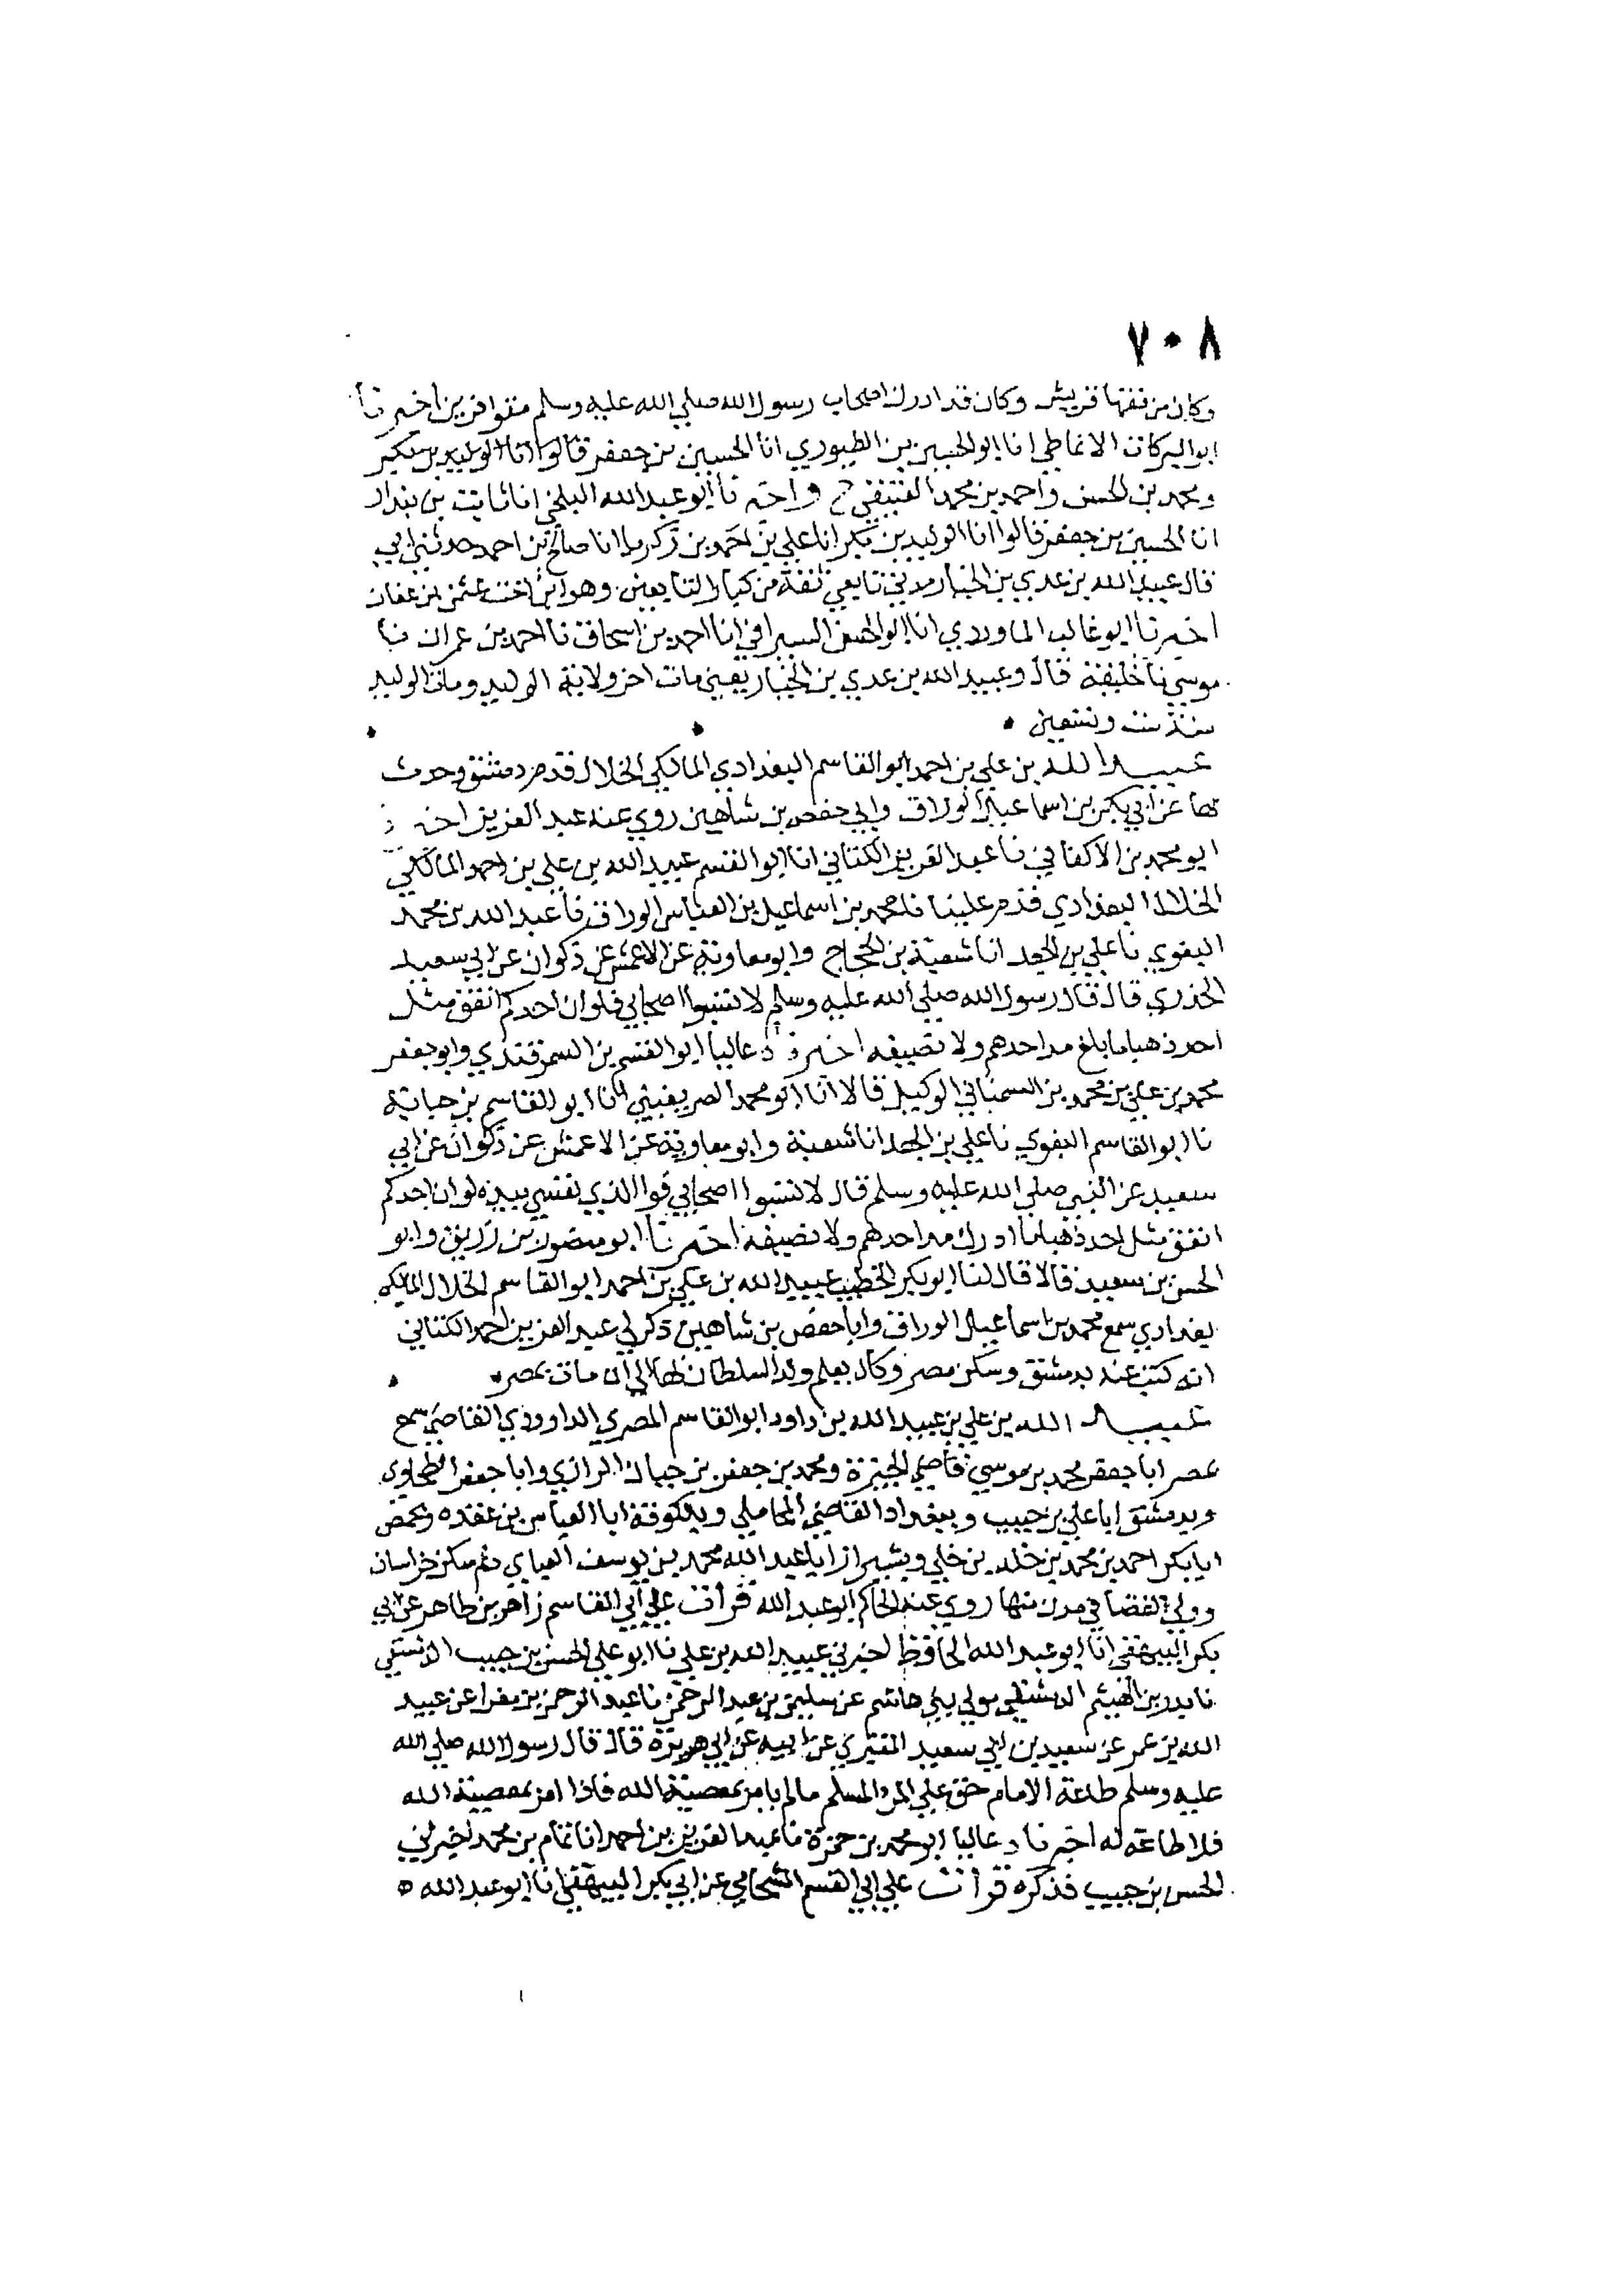 ٧٠٨
وكان من فقها قريش وكان قد ادرك اصحاب رسول الله صلي الله عليه وسلم متوافرين اخبرنا
ابو البركات الانماطي انا ابو الحسين بن الطيوري انا الحسين بن جعفر قالوا انا الوليد بن بكير
ومحمد بن الحسن واحمد بن محمد العتيقي ح واخبرنا ابو عبد الله البلخي انا ثابت بن بندار
انا الحسين بن جعفر قالوا انا الوليد بن بكر انا علي بن احمد بن زكريا انا صالح بن احمد حدثني ابي
قال عبيد الله بن عدي بن الخيار مدني تابعي ثقة من كبار التابعين وهو ابن اخت عثمن بن عفان
اخبرنا ابو غالب الماوردي انا ابو الحسن السيرافي انا احمد بن اسحاق نا احمد بن عمران نا
موسي نا خليفة قال وعبيد الله بن عدي بن الخيار يعني مات اخر ولاية الوليد ومات الوليد
سنة ست وتسعين
عبيد الله بن علي بن احمد ابو القاسم البغدادي المالكي الخلال قدم دمشق وحدث
بها عن ابي بكر بن اسماعيل الوراق وابي حفص بن شاهين روي عنه عبد العزيز اخبرنا
ابو محمد بن الاكفاني نا عبد العزيز الكتاني انا ابو القسم عبيد الله بن علي بن احمد المالكي
الخلال البغدادي قدم علينا نا محمد بن اسماعيل بن العباس الوراق نا عبد الله بن محمد
البغوي نا علي بن الجعد انا شعبة بن الحجاج وابو معاوية عن الاعمش عن ذكوان عن ابي سعيد
الخدري قال قال رسول الله صلي الله عليه وسلم لا تسبوا اصحابي فلو ان احدكم انفق مثل
احد ذهبا ما بلغ مد احدهم ولا نصيفه اخبرناه عاليا ابو القسم بن السمرقندي وابو جعفر
محمد بن علي بن محمد بن السمناني الوكيل قالا انا ابو محمد الصريفيني انا ابو القاسم بن حبابة
نا ابو القاسم البغوي نا علي بن الجعد انا شعبة وابو معاوية عن الاعمش عن ذكوان عن ابي
سعيد عن النبي صلي الله عليه وسلم قال لا تسبوا اصحابي فوا الذي نفسي بيده لو ان احدكم
انفق مثل احد ذهبا ما ادرك مد احدهم ولا نصيفه اخبرنا ابو منصور بن زريق وابو
الحسن بن سعيد قالا قال لنا ابو بكر الخطيب عبيد الله بن علي بن احمد ابو القاسم الخلال المالكي
بغدادي سمع محمد بن اسماعيل الوراق وابا حفص بن شاهين ذكر لي عبد العزيز بن احمد الكتاني
انه كتب عنه بدمشق وسكن مصر وكان يعلم ولد السلطان بها الي ان مات بمصر
عبيد الله بن علي بن عبيد الله بن داود ابو القاسم المصري الداوودي القاضي سمع
بمصر ابا جعفر محمد بن موسي قاضي الجيزة ومحمد بن جعفر بن جباك الرازي وابا جعفر الطحاوي
وبدمشق ابا علي بن حبيب وببغداد القاضي المحاملي وبالكوفة ابا العباس بن عقده وبحمص
ابا بكر احمد بن محمد بن خلد بن خلي وبشيراز ابا عبد الله محمد بن يوسف ثم سكن خراسان
وولي القضا في مدن منها روي عنه الحاكم ابو عبد الله قرات علي ابي القاسم زاهر بن طاهر عن ابي
بكر البيهقي انا ابو عبد الله الحافظ اخبرني عبيد الله بن علي نا ابو علي الحسن بن حبيب الدمشقي
نا بدر بن الهيثم الدمشقي مولي بني هاشم عن سليمن بن عبد الرحمن نا عبد الرحمن بن مغرا عن عبيد
الله بن عمر عن سعيد بن ابي سعيد المقبري عن ابيه عن ابي هريرة قال قال رسول الله صلي الله
عليه وسلم طاعة الامام حق علي المر المسلم ما لم يامر بمعصية الله فاذا امر بمعصية الله
فلا طاعة له اخبرناه عاليا ابو محمد بن حمزة نا عبد العزيز بن احمد انا تمام بن محمد اخبرني
الحسن بن حبيب فذكره قرات علي ابي القسم الشحامي عن ابي بكر البيهقي انا ابو عبد الله